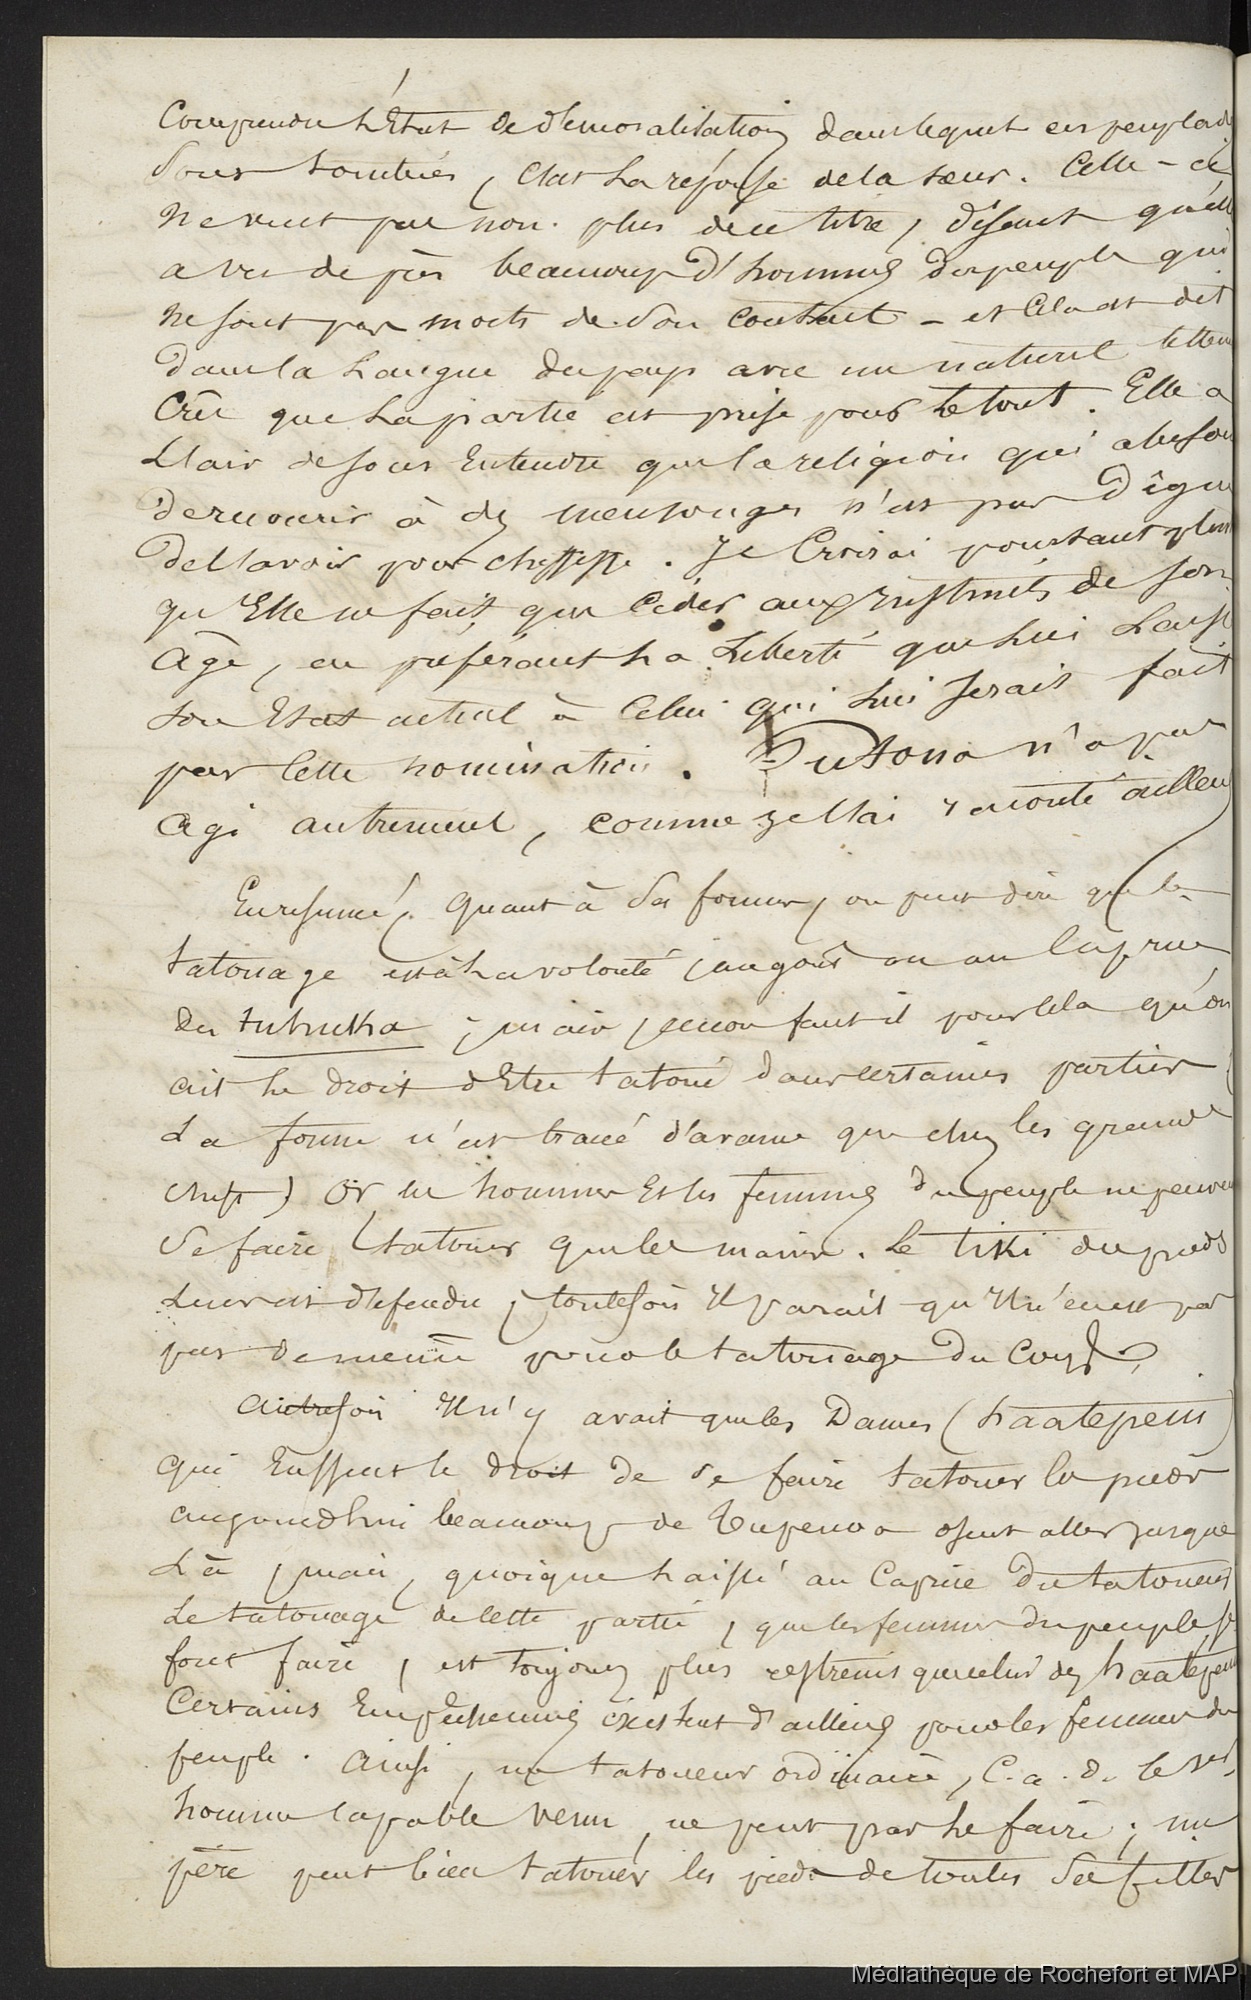 Comprendre l'Etat de démoralisation dans lequel ces peuplades
sont tombées, c'est la réponse de la sœur. Celle-ci
ne veut pas non plus de ce titre, disant qu'elle
a vu de près beaucoup d'hommes du peuple qui
ne sont pas morts de son contact - et cela est dit
dans la langue du pays avec un naturel tellement
crû que la partie est prise pour le tout. Elle a
l'air de sous Entendre que la religion qui a besoin
de recourir à des mensonges n'est pas digne
de l'avoir pour cheffesse. Je Croirai pourtant plus
qu'Elle ne fait que Céder aux Instincts de son
Age, en préférant la Liberté que lui laisse
son Etat actuel à Celui qui lui serait fait
par Cette nomination. n'a pas
agi autrement, comme je l'ai raconté ailleurs
En résumé, quant à sa forme, on peut dire que le
tatouage est à la volonté, au goût ou au Caprice
du tuhuka ; mais, encore faut-il pour cela qu'on
ait le droit d'Etre tatoué dans certaines parties (
La forme n'est tracé d'avance que chez les grands
chefs) Or, les hommes Et les femmes du peuple ne peuvent
se faire tatouer que les mains. Le tiki des pieds
leur est défendu, toutefois Il parait qu'Il n'en est pas
pas de même pour le tatouage du Corps
Autrefois Il n'y avait que les Dames (haatepeiu)
qui Eussent le droit de se faire tatouer les pieds
aujourd'hui beaucoup de osent aller jusque
là, mais, quoique laissé au Caprice du tatoueur
Le tatouage de cette partie, que les femmes du peuple se
font faire, est toujours plus restreint que celui des haatepeiu
Certains Empêchements éxistent d'ailleurs pour les femmes du
peuple. Ainsi, un tatoueur ordinaire, C. a. d. le 1er
homme capable venu, ne peut pas le faire ; un
père peut bien tatouer les pieds de toutes ses filles
Médiathèque de Rochefort et MAP